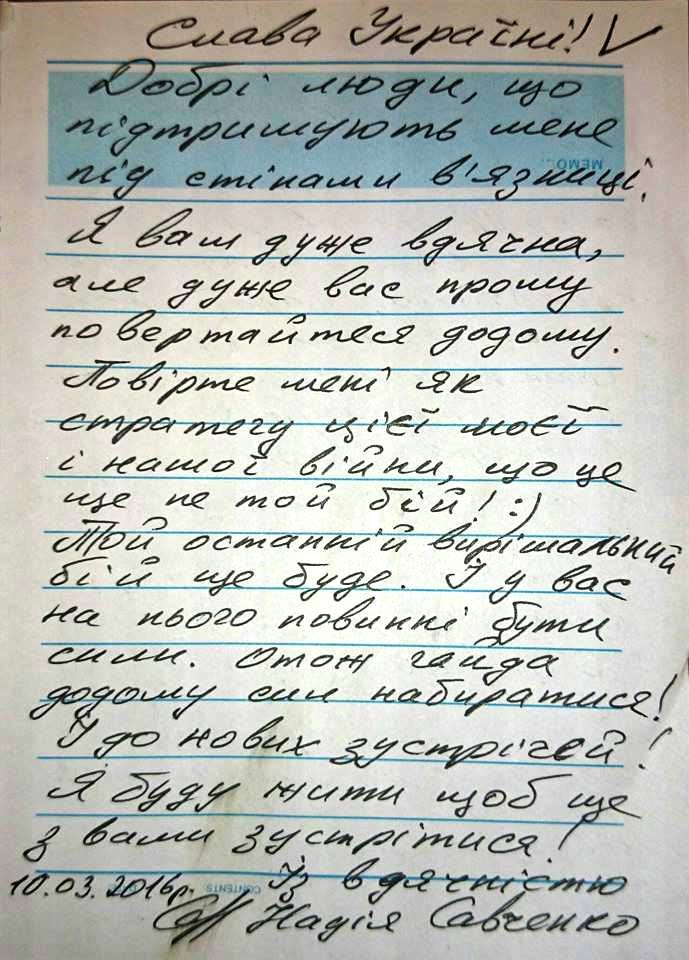 Слава Україні! V
Добрі люди, що
підтримують мене
MEMO...
під стінами в'язниці,
Я вам дуже вдячна,
але дуже вас прошу
повертайтеся додому.
Повірте мені як
стратегу цієї моєї
і нашої війни, що це
ще не той бій! :)
Той останній вирішальний
бій ще буде. І у вас
на нього повинні бути
сили. Отож гайда
додому сил набиратися!
І до нових зустрічєй!
Я буду жити щоб ще
з вами зустрітися!
10.03.2016р. CONTENTS Із вдячністю
Надія Савченко